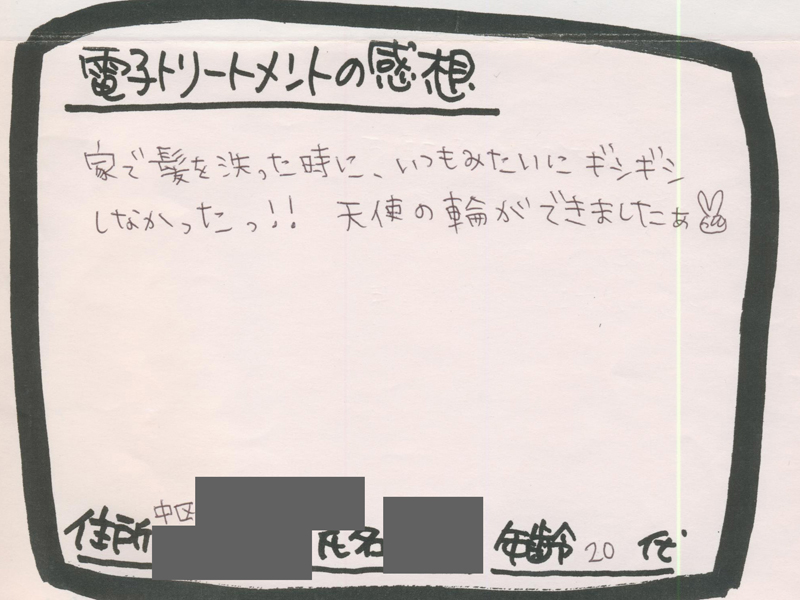 電子トリートメントの感想
家で髪を洗った時に、いつもみたいにギシギシ
しなかったっ!! 天使の輪ができましたぁ
住所 中区 氏名 年齢 20 代